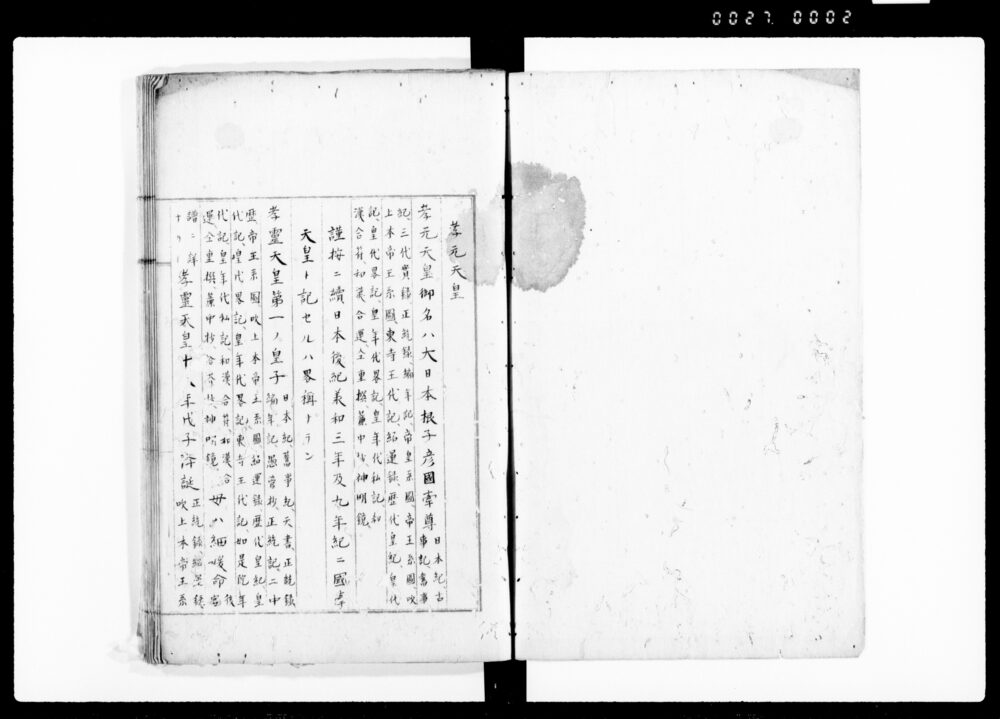 0027. 0002
孝元天皇
孝元天皇御名ハ大日本根子彦國牽尊 日本紀、古
事記、舊事
紀、三代實錄、正統錄、編年記、帝皇系圖、帝王系圖、吹
上本帝王系圖、東寺王代記、紹運錄、歴代皇紀、皇代
記、皇代畧記、皇年代畧記、皇年代私記、和
漢合符、和漢合運、仝重撰、簾中抄、神明鏡
謹按ニ續日本後紀義和三年及九年紀ニ國牽
天皇ト記セルハ畧稱ナラン
孝靈天皇第一ノ皇子 日本紀、舊事紀、天書、正統錄
編年記、愚管抄、正統記、二中
歴、帝王系圖、吹上本帝王系圖、紹運錄、歴代皇紀、皇
代記、皇代畧記、皇年代畧記、東寺王代記、如是院年
代記、皇年代私記、和漢合符、和漢合
運、仝重撰、簾中抄、神明鏡 母ハ細媛命 後
譜ニ詳 孝靈天皇十八年戊子降誕 正統錄、紹運錄、
吹上本帝王系